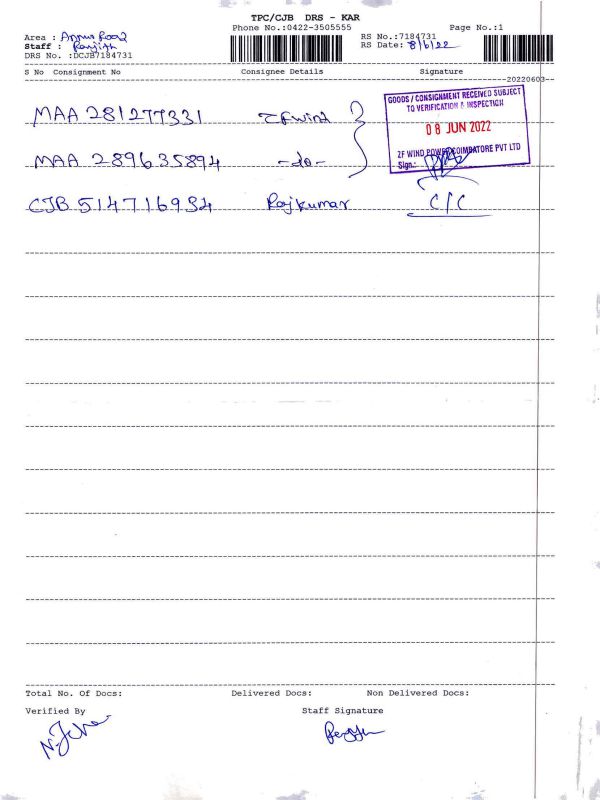 TPC/CJB DRS - KAR
Phone No.:0422-3505555
Page No.:1
Area : Annur Road
Staff : Ranjith
DRS No. :DCJB7184731
RS No.:7184731
RS Date: 8/6/22
S No Consignment No Consignee Details Signature
20220603
MAA 281277331 ZF wind
GOODS / CONSIGNMENT RECEIVED SUBJECT
TO VERIFICATION & INSPECTION
08 JUN 2022
ZF WIND POWER COIMBATORE PVT LTD
Sign.:
MAA 289635894 -do-
CJB 514716934 Rajkumar C/C
Total No. Of Docs: Delivered Docs: Non Delivered Docs:
Verified By Staff Signature